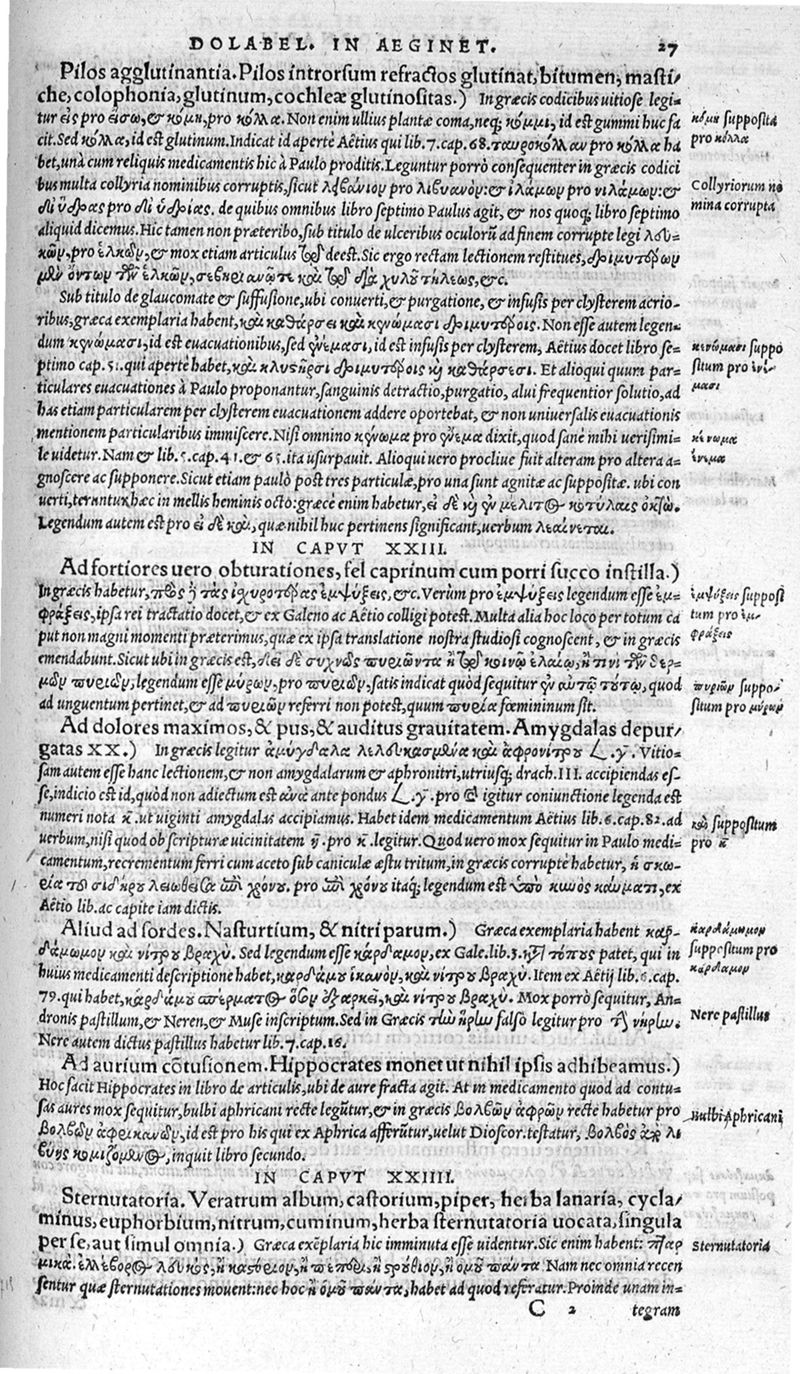 DOLABEL. IN AEGINET. 27
Pilos agglutinantia. Pilos introrsum refractos glutinãt, bitumen, masti/
che, colophonia, glutinum, cochleæ glutinositas.) In græcis codicibus uitiose legi=
tur εἰς pro εισω, & κόμη, pro κόλλα. Non enim ullius plantæ coma, neq; κόμμι, id est gummi huc fa
cit. Sed κόλλα, id est glutinum. Indicat id aperte Aëtius qui lib. 7. cap. 68. ταυροκόλλαν pro κόλλα ha
bet, unà cum reliquis medicamentis hic à Paulo proditis. Leguntur porrò consequenter in græcis codici
bus multa collyria nominibus corruptis, sicut λιβάνιον pro λιβυανὸν: & ιλάμων pro νιλάμων: &
δι ὕδρας pro δι ὑδρίας. de quibus omnibus libro septimo Paulus agit, & nos quoq; libro septimo
aliquid dicemus. Hic tamen non præteribo, sub titulo de ulceribus oculorũ ad finem corrupte legi λευ=
κῶν, pro ἑλκῶν, & mox etiam articulus deest. Sic ergo rectam lectionem restitues, δριμυτέρων
μὲν ὄντων τῶν ἑλκῶν, καὶ διὰ χυλοῦ τήλεως, &c.
Sub titulo de glaucomate & suffusione, ubi conuerti, & purgatione, & infusis per clysterem acrio-
ribus, græca exemplaria habent, καὶ καθάρσει καὶ κενώμασι δριμυτέροις. Non esse autem legen-
dum κενώμασι, id est euacuationibus, sed ἐνέμασι, id est infusis per clysterem, Aëtius docet libro se=
ptimo cap. 51. qui aperte habet, καὶ κλυστῆρσι δριμυτέροις καὶ καθάρσεσι. Et alioqui quum par=
ticulares euacuationes à Paulo proponantur, sanguinis detractio, purgatio, alui frequentior solutio, ad
has etiam particularem per clysterem euacuationem addere oportebat, & non uniuersalis euacuationis
mentionem particularibus immiscere. Nisi omnino κένωμα pro ἔνεμα dixit, quod sanè mihi uerisimi-
le uidetur. Nam & lib. 5. cap. 41. & 65. ita usurpauit. Alioqui uero procliue fuit alteram pro altera a-
gnoscere ac supponere. Sicut etiam paulò post tres particulæ, pro una sunt agnitæ ac suppositæ. ubi con
uerti, terantur hæc in mellis heminis octo: græcè enim habetur, εἰ δὲ καὶ ἐν μέλιτος κοτύλαις ὀκτώ.
Legendum autem est pro εἰ δὲ καὶ, quæ nihil huc pertinens significant, uerbum λεαίνεται.
IN CAPVT XXIII.
Ad fortiores uero obturationes, fel caprinum cum porri succo instilla.)
In græcis habetur, πρὸς ἢ τὰς ἰσχυροτέρας ἐμψύξεις, &c. Verum pro ἐμψύξεις legendum esse ἐμ-
φράξεις, ipsa rei tractatio docet, & ex Galeno ac Aëtio colligi potest. Multa alia hoc loco per totum ca
put non magni momenti præterimus, quæ ex ipsa translatione nostra studiosi cognoscent, & in græcis
emendabunt. Sicut ubi in græcis est, ἀεὶ δὲ συχνῶς πυριῶντα ἢ τῷ κοινῷ ἐλαίῳ, ἤ τινι τῶν θερ-
μῶν πυριῶν, legendum esse μύρων, pro πυριῶν, satis indicat quòd sequitur ἐν αὐτῷ τούτῳ, quod
ad unguentum pertinet, & ad πυριῶν referri non potest, quum πυρία fœmininum sit.
Ad dolores maximos, & pus, & auditus grauitatem. Amygdalas depur/
gatas XX.) In græcis legitur ἀμύγδαλα λελευκασμένα καὶ ἀφρονίτρου γ̄. Vitio-
sam autem esse hanc lectionem, & non amygdalarum & aphronitri, utriusq; drach. III. accipiendas es-
se, indicio est id, quòd non adiectum est ἀνὰ ante pondus γ̄. pro καὶ igitur coniunctione legenda est
numeri nota κ̄. ut uiginti amygdalas accipiamus. Habet idem medicamentum Aëtius lib. 6. cap. 82. ad
uerbum, nisi quod ob scripturæ uicinitatem η̄. pro κ̄. legitur. Quod uero mox sequitur in Paulo medi=
camentum, recrementum ferri cum aceto sub caniculæ æstu tritum, in græcis corrupte habetur, ἢ σκω-
ρία τοῦ σιδήρου λειωθεῖσα ἐπὶ χρόνου. pro ἐπὶ χρόνου itaq; legendum est ὑπὸ κυνὸς καύματι, ex
Aëtio lib. ac capite iam dictis.
Aliud ad sordes. Nasturtium, & nitri parum.) Græca exemplaria habent καρ-
δάμωμον καὶ νίτρου βραχὺ. Sed legendum esse κάρδαμον, ex Gale. lib. 3. κτ̀ τόπους patet, qui in
huius medicamenti descriptione habet, καρδάμου ἱκανὸν, καὶ νίτρου βραχὺ. Item ex Aëtij lib. 6. cap.
79. qui habet, καρδάμου σπέρματος ὅσον ἐξαρκεῖ, καὶ νίτρου βραχὺ. Mox porrò sequitur, An-
dronis pastillum, & Neren, & Muse inscriptum. Sed in Græcis τὼ ἥρω falso legitur pro τὴν νήρω.
Nere autem dictus pastillus habetur lib. 7. cap. 16.
Ad aurium cõtusionem. Hippocrates monet ut nihil ipsis adhibeamus.)
Hoc facit Hippocrates in libro de articulis, ubi de aure fracta agit. At in medicamento quod ad contu-
sas aures mox sequitur, bulbi aphricani recte legũtur, & in græcis βολβῶν ἀφρῶν recte habetur pro
βολβῶν ἀφρικανῶν, id est pro his qui ex Aphrica afferũtur, uelut Dioscor. testatur, βολβὸς ἀπὸ λι
βύης κομιζομένος, inquit libro secundo.
IN CAPVT XXIIII.
Sternutatoria. Veratrum album, castorium, piper, herba lanaria, cycla/
minus, euphorbium, nitrum, cuminum, herba sternutatoria uocata, singula
per se, aut simul omnia.) Græca exẽplaria hic imminuta esse uidentur. Sic enim habent: πταρ
μικά. ἐλλέβορος λευκὸς, ἢ καστόριον, ἢ πέπερι, ἢ στρούθιον, ἢ ὁμοῦ πάντα. Nam nec omnia recen
sentur quæ sternutationes mouent: nec hoc ἢ ὁμοῦ πάντα, habet ad quod referatur. Proinde unam in=
C 2 tegram
κόμη supposita
pro κόλλα
Collyriorum no
mina corrupta
κενώμασι suppo
situm pro ἐνέ-
μασι
κένωμα
ἔνεμα
ἐμψύξεις supposi
tum pro ἐμ-
φράξεις
πυριῶν suppo-
situm pro μύρων
καὶ suppositum
pro κ̄
καρδάμωμον
suppositum pro
κάρδαμον
Nere pastillus
Bulbi Aphricani
Sternutatoria